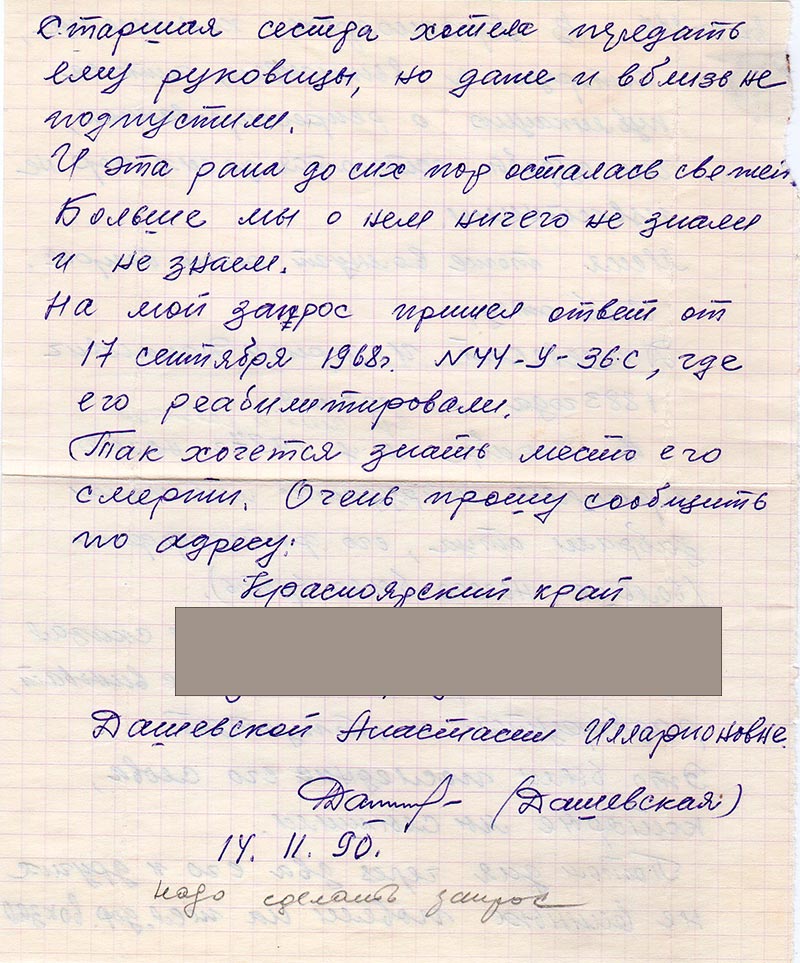 Старшая сестра хотела передать
ему руковицы, но даже и вблизь не
подпустили.
И эта рана до сих пор осталась свежей
Больше мы о нем ничего не знали
и не знаем.
На мой запрос пришел ответ от
17 сентября 1968г. N44-У-36.С, где
его реабилитировали.
Так хочется знать место его
смерти. Очень прошу сообщить
по адресу:
Красноярский край
Дашевской Анастасии Илларионовне.
(Дашевская)
14. 11. 90.
надо сделать запрос